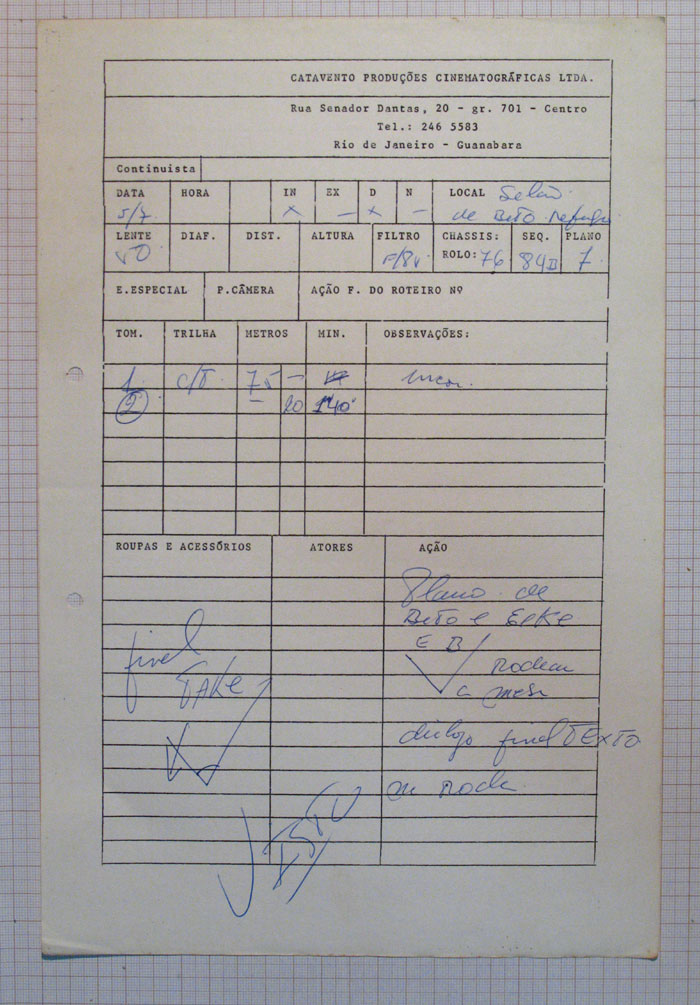 CATAVENTO PRODUÇÕES CINEMATOGRÁFICAS LTDA.
Rua Senador Dantas, 20 - gr. 701 - Centro
Tel.: 246 5583
Rio de Janeiro - Guanabara
Contínuista
DATA HORA IN EX D N LOCAL
5/7 x - x - de Beto
LENTE DIAF. DIST. ALTURA FILTRO CHASSIS: SEQ. PLANO
50 ROLO: 76 84B 7
E.ESPECIAL P.CÂMERA AÇÃO F. DO ROTEIRO Nº
TOM. TRILHA METROS MIN. OBSERVAÇÕES:
1 75 -
2 - 20 1'40"
ROUPAS E ACESSÓRIOS ATORES AÇÃO
Plano de
Beto e
E B
final rodam
TAKE a mesa
dialogo final TEXTO